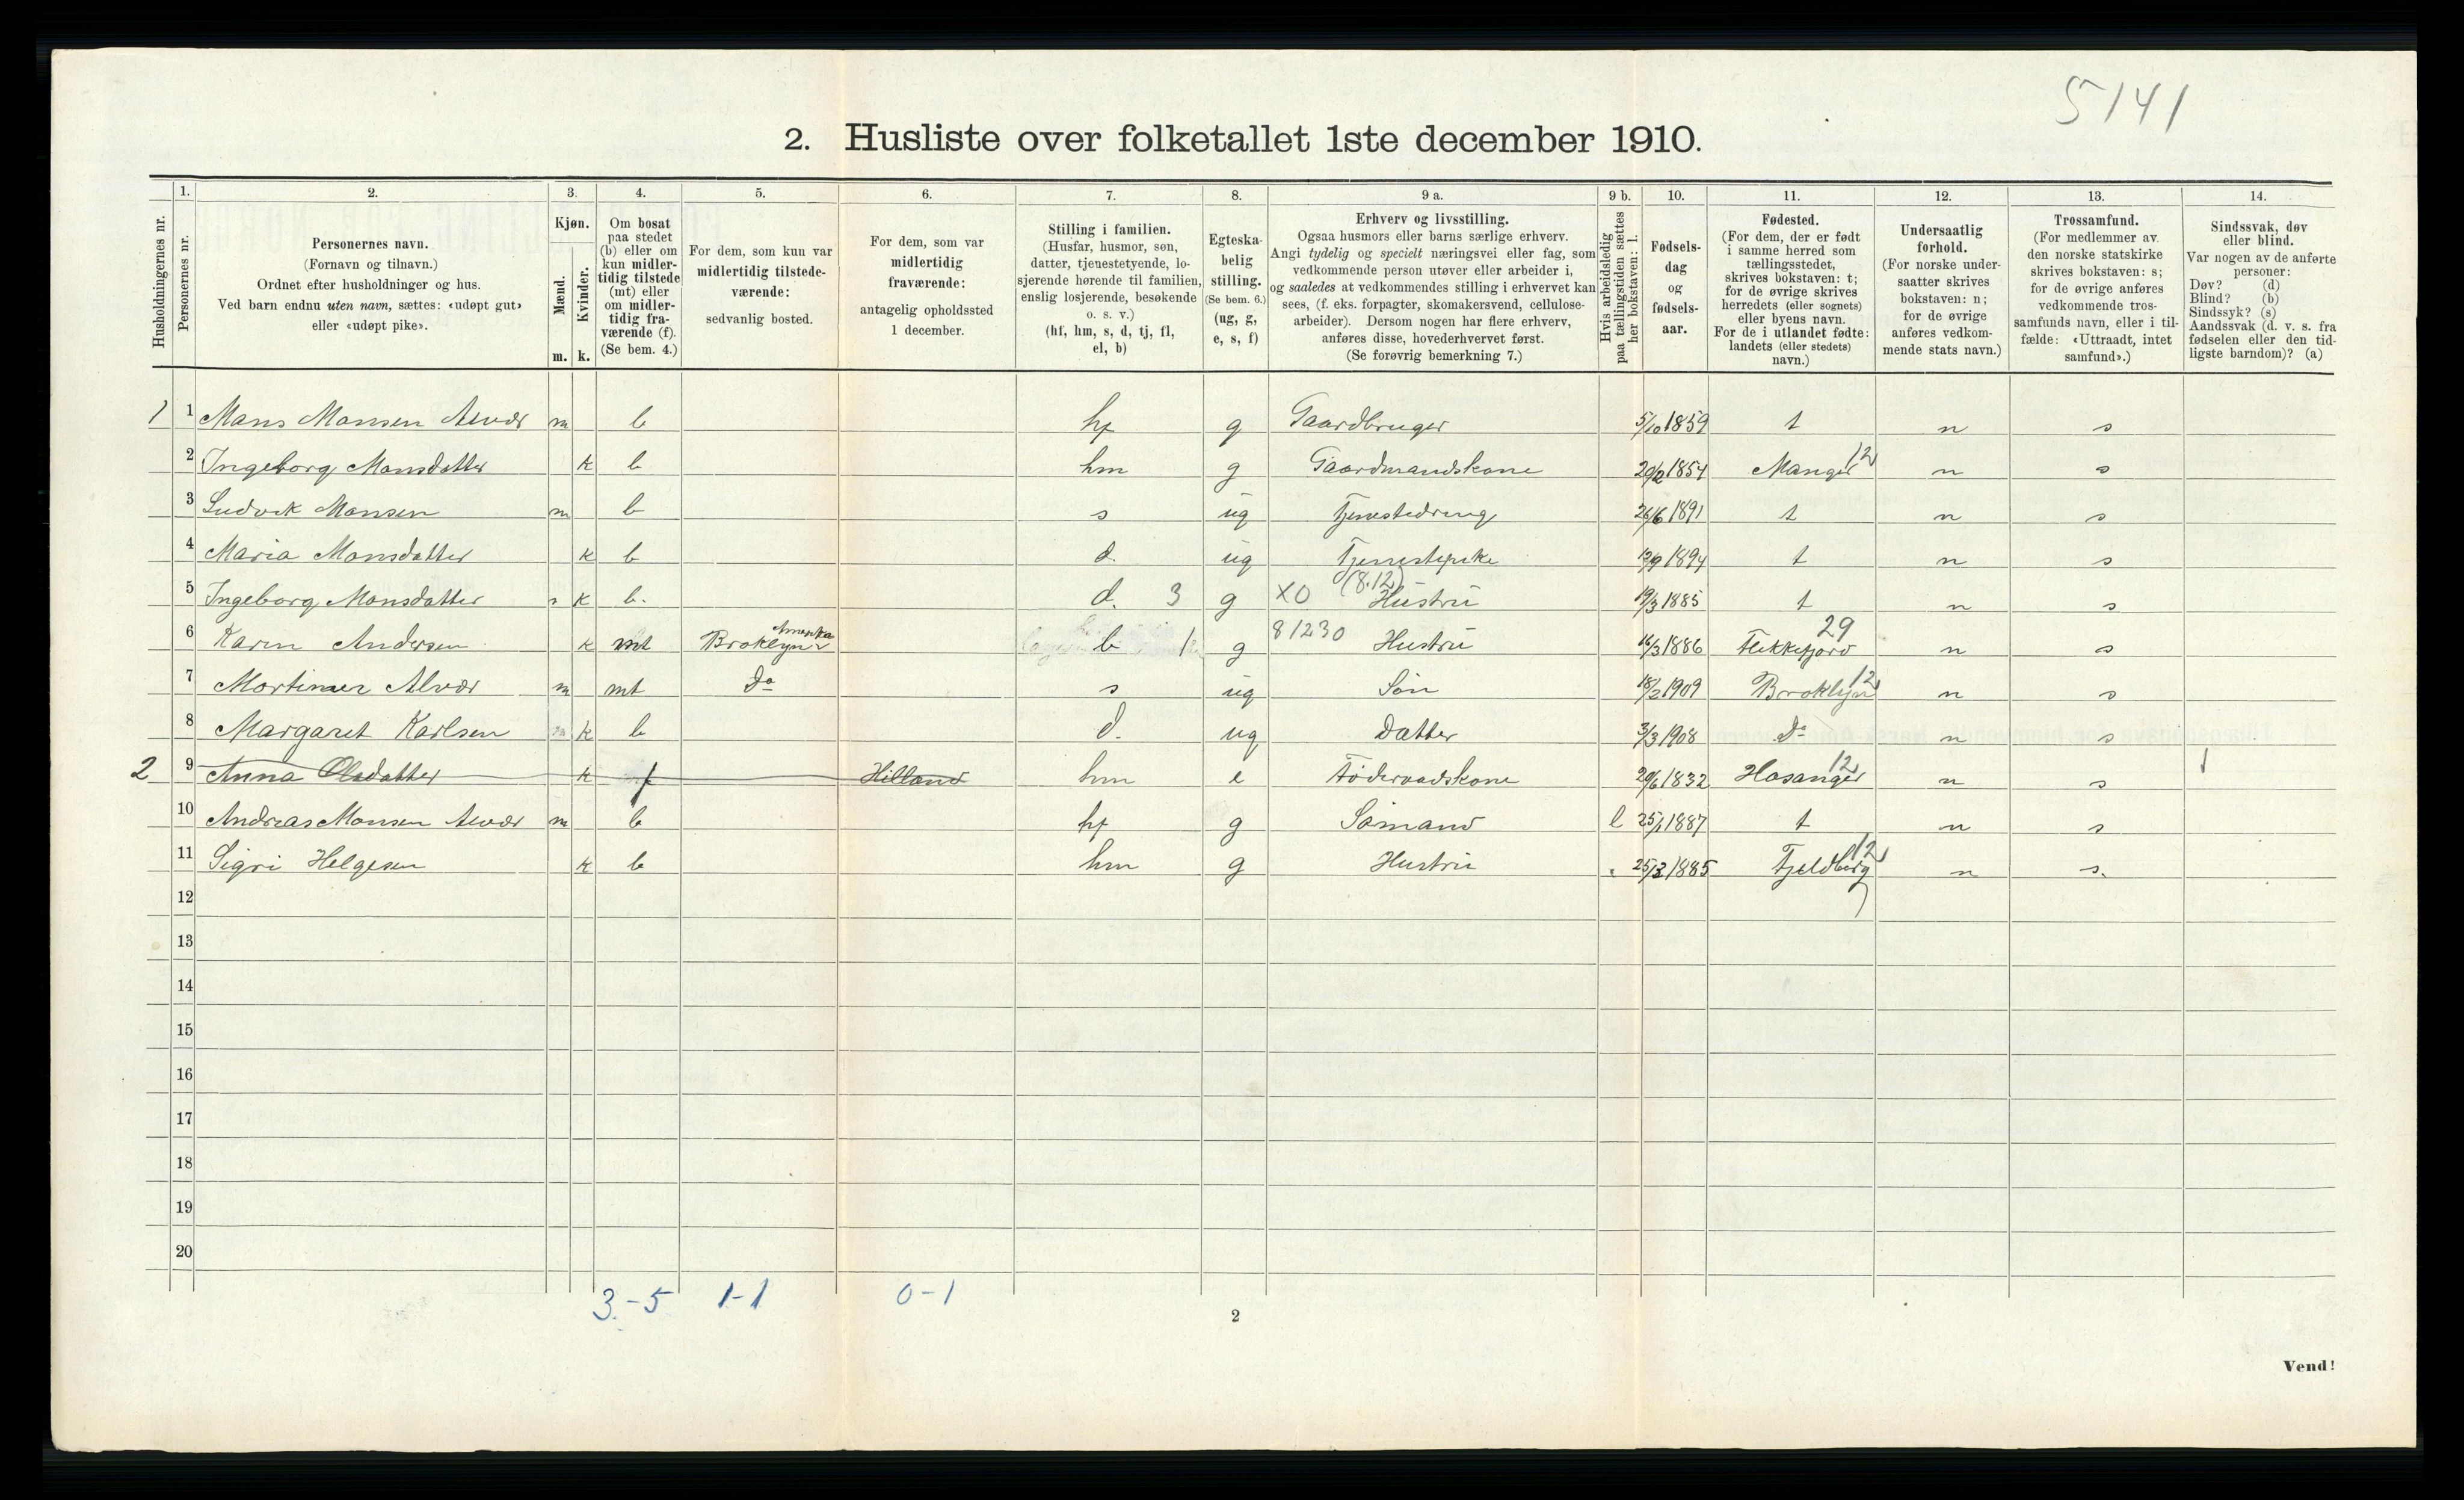 5141
2. Husliste over folketallet 1ste december 1910.
Husholdningernes nr.
1. Personernes nr.
2. Personernes navn.
(Fornavn og tilnavn.)
Ordnet efter husholdninger og hus.
Ved barn endnu uten navn, sættes: «udøpt gut»
eller «udøpt pike».
3. Kjøn.
Mænd. m.
Kvinder. k.
4. Om bosat
paa stedet
(b) eller om
kun midler-
tidig tilstede
(mt) eller
om midler-
tidig fra-
værende (f).
(Se bem. 4.)
5. For dem, som kun var
midlertidig tilstede-
værende:
sedvanlig bosted.
6. For dem, som var
midlertidig
fraværende:
antagelig opholdssted
1 december.
7. Stilling i familien.
(Husfar, husmor, søn,
datter, tjenestetyende, lo-
sjerende hørende til familien,
enslig losjerende, besøkende
o. s. v.)
(hf, hm, s, d, tj, fl,
el, b)
8. Egteska-
belig
stilling.
(Se bem. 6.)
(ug, g,
e, s, f)
9 a. Erhverv og livsstilling.
Ogsaa husmors eller barns særlige erhverv.
Angi tydelig og specielt næringsvei eller fag, som
vedkommende person utøver eller arbeider i,
og saaledes at vedkommendes stilling i erhvervet kan
sees, (f. eks. forpagter, skomakersvend, cellulose-
arbeider). Dersom nogen har flere erhverv,
anføres disse, hovederhvervet først.
(Se forøvrig bemerkning 7.)
9 b. Hvis arbeidsledig
paa tællingstiden sættes
her bokstaven: l.
10. Fødsels-
dag
og
fødsels-
aar.
11. Fødested.
(For dem, der er født
i samme herred som
tællingsstedet,
skrives bokstaven: t;
for de øvrige skrives
herredets (eller sognets)
eller byens navn.
For de i utlandet fødte:
landets (eller stedets)
navn.)
12. Undersaatlig
forhold.
(For norske under-
saatter skrives
bokstaven: n;
for de øvrige
anføres vedkom-
mende stats navn.)
13. Trossamfund.
(For medlemmer av
den norske statskirke
skrives bokstaven: s;
for de øvrige anføres
vedkommende tros-
samfunds navn, eller i til-
fælde: «Uttraadt, intet
samfund».)
14. Sindssvak, døv
eller blind.
Var nogen av de anførte
personer:
Døv? (d)
Blind? (b)
Sindssyk? (s)
Aandssvak (d. v. s. fra
fødselen eller den tid-
ligste barndom)? (a)
1 1 Mans Monsen Alvær m b hf g Gaardbruger 5/10 1859 t n s
2 Ingeborg Monsdatter k b hm g Gaardmandskone 1854 Manger 12 n s
3 Ludvik Monsen m b s ug Tjenestedreng 26/6 1891 t n s
4 Maria Monsdatter k b d. ug Tjenestepike 1894 t n s
5 Ingeborg Monsdatter k b. d. 3 g XO (8.12) Hustru 19/3 1885 t n s
6 Karen Andersen k mt Broklyn Amerika b 1 g 81230 Hustru 16/3 1886 Flekkefjord 29 n s
7 Mortimer Alvær m mt Do s ug Søn 18/2 1909 Broklyn 12 n s
8 Margaret Karlsen k b d. ug Datter 3/3 1908 Do n s
2 9 Anna Olsdatter k f Hilland hm e Føderaadskone 20/6 1832 Hosanger 12 n s
10 Andreas Monsen Alvær m b hf g Sømand l 25/1 1887 t n s
11 Sigri Helgesen k b hm g Hustru 1885 Fjeldberg 12 n s.
12
13
14
15
16
17
18
19
20
3-5 1-1 0-1
2
Vend!